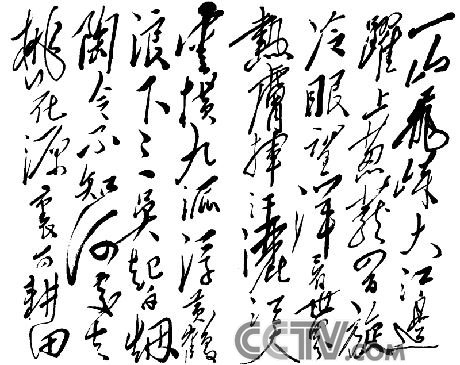 一山飛峙大江邊
躍上葱龍四百旋
冷眼望洋看世界
熱膚揮汗灑江天
雲橫九派浮黃鶴
浪下三吳起白烟
陶令不知何處去
桃花源裏可耕田
CCTV.com